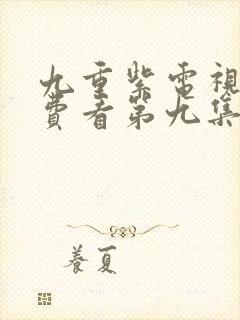 九重紫電視
費看第九集
養夏